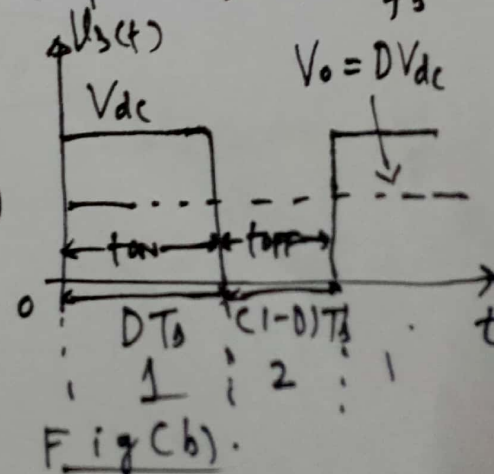 Vs(t)
Vo = DVdc
Vdc
tON tOFF
0
t
DTs (1-D)Ts
1 2 1
Fig(b).